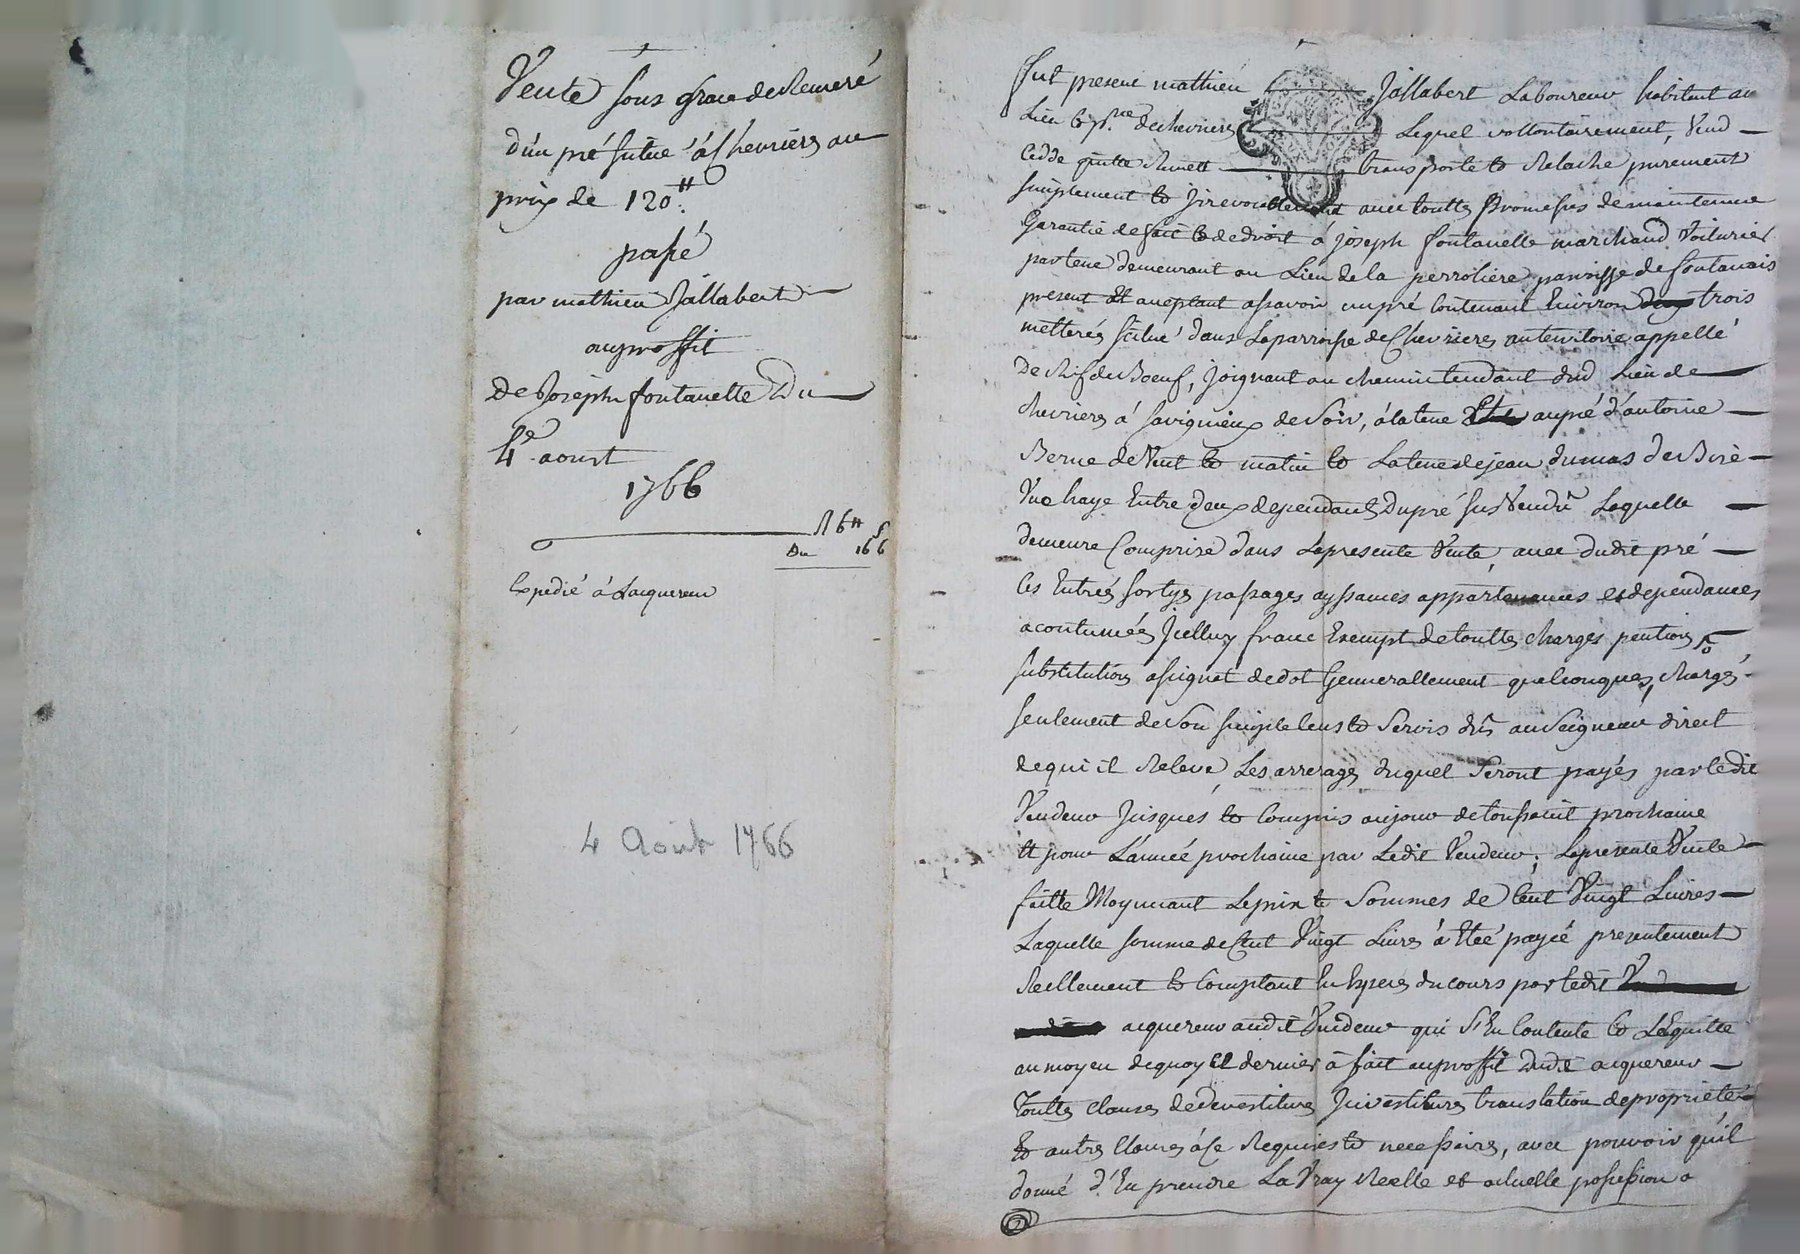 Vente sous grace de Remeré
d'un pré situé á Chevrieres au
prix de 120.#
passé
par mathieu Jallabert
au proffit
de Joseph fontanelle Du
4e aoust
1766
16#
Du 16 6
Expedié á Lacquereur
4 Août 1766
fut present mathieu Jallabert Laboureur habitant au
Lieu et psse de chevrieres Lequel vollontairement, Vend
Cedde quitte Remett transporte et Relache purement
simplement et Jrevocablement avec touttes promesses de maintenue
Garantie de fait et de droit á joseph fontanelle marchand Voiturier
par terre demeurant au Lieu de la perroliere parroisse de fontanais
present et aceptant assavoir un pré Contenant Environ trois
metterés scitué dans La parroisse de Chevrieres au territoire appellé
De Rif du Boeuf, Joignant au chemin tendant dud Lieu de
chevrieres á Savignieux de Soir, á la terre au pré d'antoine
Berne de Vent et matin et La terre de jean dumas de Bize
Vne haye Entre deux dependante Du pré sus Vendu Laquelle
demeure Comprise dans La presente Vente, avec dudit pré
Ces Entrées sortyes passages ayssances appartenances et dependances
acoutumées Jcelluy franc Exempt de touttes charges pentions
substitutions assignat de dot Gennerallement quelconques, chargé
seulement de Son simple Cens et Servis dû au Seigneur direct
de qui il Releve, Les arrerages duquel Seront payés par Ledit
Vendeur Jusques et Compris au jour de toussaint prochaine
Et pour L'année prochaine par Ledit Vendeur; La presente Vente
faitte Moyennant Le prix et Sommes de Cent Vingt Livres
Laquelle somme de Cent Vingt Livres á Eteé payeé presentement
Reellement et Comptant En Especes du cours par Ledit
acquereur audit Vendeur qui S'En Contente et L'Equitte
au moyen de quoy Ce dernier á fait au proffit Dudit acquereur
touttes clauses de devestitures Jnvestitures translation de proprieté
Et autres Clauses á Ce Requises et necessaires, avec pouvoir qu'il
donné d'En prendre La Vray Reelle et actuelle possession